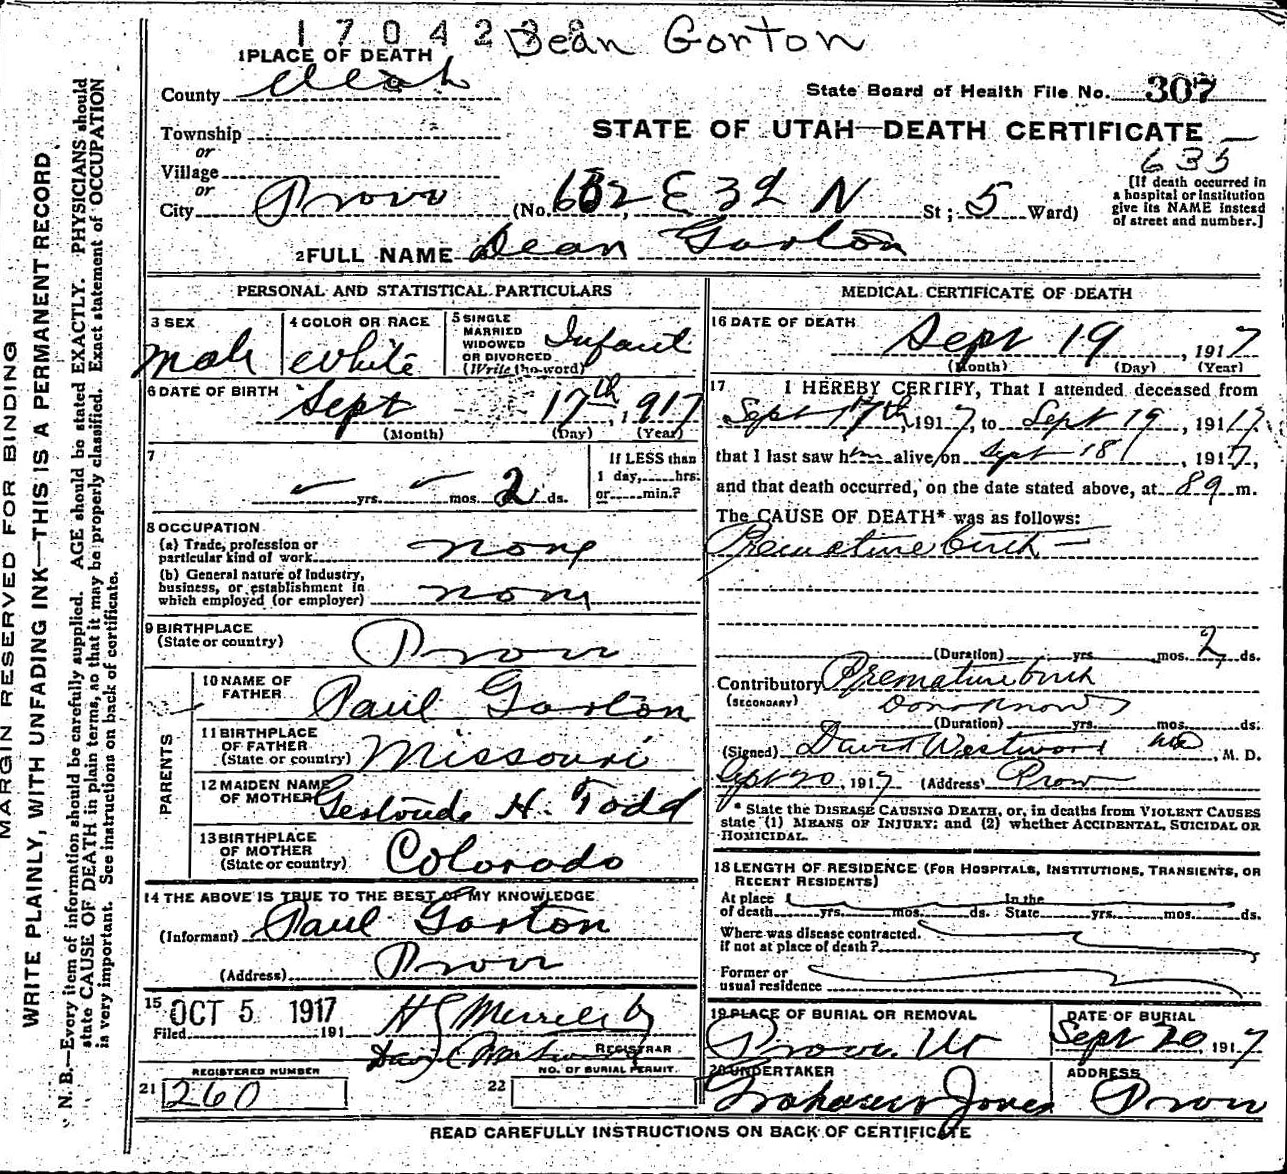 MARGIN RESERVED FOR BINDING
WRITE PLAINLY, WITH UNFADING INK—THIS IS A PERMANENT RECORD
N. B.—Every item of information should be carefully supplied. AGE should be stated EXACTLY. PHYSICIANS should
state CAUSE OF DEATH in plain terms, so that it may be properly classified. Exact statement of OCCUPATION
is very important. See instructions on back of certificate.
170423 Dean Gorton
1 PLACE OF DEATH
County Utah
State Board of Health File No. 307
Township
STATE OF UTAH—DEATH CERTIFICATE
or
Village
635
or
City Provo (No. 602, E 3d N St; 5 Ward)
[If death occurred in
a hospital or institution
give its NAME instead
of street and number.]
2 FULL NAME Dean Gorton
PERSONAL AND STATISTICAL PARTICULARS
3 SEX
Male
4 COLOR OR RACE
White
5 SINGLE
MARRIED
WIDOWED
OR DIVORCED
(Write the word)
Infant
6 DATE OF BIRTH Sept 17th, 1917
(Month) (Day) (Year)
7
yrs. mos. 2 ds.
If LESS than
1 day, hrs.
or min.?
8 OCCUPATION
(a) Trade, profession or
particular kind of work none
(b) General nature of Industry,
business, or establishment in
which employed (or employer) none
9 BIRTHPLACE
(State or country) Provo
PARENTS
10 NAME OF
FATHER Paul Gorton
11 BIRTHPLACE
OF FATHER
(State or country) Missouri
12 MAIDEN NAME
OF MOTHER Gertrude H. Todd
13 BIRTHPLACE
OF MOTHER
(State or country) Colorado
14 THE ABOVE IS TRUE TO THE BEST OF MY KNOWLEDGE
(Informant) Paul Gorton
(Address) Provo
15 OCT 5 1917
Filed 191
REGISTRAR
REGISTERED NUMBER
21 260
NO. OF BURIAL PERMIT.
22
MEDICAL CERTIFICATE OF DEATH
16 DATE OF DEATH
Sept 19, 1917
(Month) (Day) (Year)
17 I HEREBY CERTIFY, That I attended deceased from
Sept 17th, 1917, to Sept 19, 1917,
that I last saw him alive on Sept 18, 1917,
and that death occurred, on the date stated above, at 8 a m.
The CAUSE OF DEATH* was as follows:
Premature birth
(Duration) yrs. mos. 2 ds.
Contributory Premature birth
(SECONDARY) Dont Know
(Duration) yrs. mos. ds.
(Signed) David Westwood MD, M. D.
Sept 20, 1917 (Address) Provo
* State the DISEASE CAUSING DEATH, or, in deaths from VIOLENT CAUSES
state (1) MEANS OF INJURY; and (2) whether ACCIDENTAL, SUICIDAL OR
HOMICIDAL.
18 LENGTH OF RESIDENCE (FOR HOSPITALS, INSTITUTIONS, TRANSIENTS, OR
RECENT RESIDENTS)
At place
of death yrs. mos. ds.
In the
State yrs. mos. ds.
Where was disease contracted.
if not at place of death?
Former or
usual residence
19 PLACE OF BURIAL OR REMOVAL
Provo. Ut
DATE OF BURIAL
Sept 20, 1917
20 UNDERTAKER
Jones
ADDRESS
Provo
READ CAREFULLY INSTRUCTIONS ON BACK OF CERTIFICATE